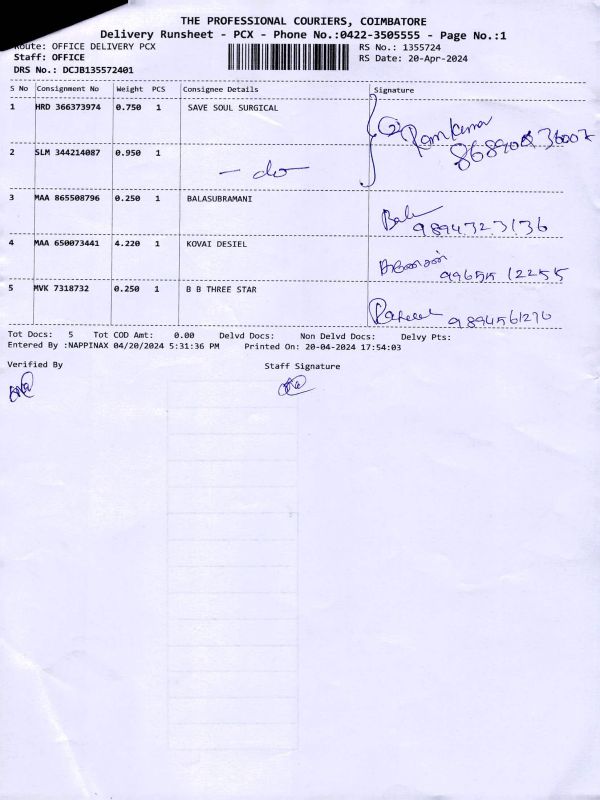 THE PROFESSIONAL COURIERS, COIMBATORE
Delivery Runsheet - PCX - Phone No.:0422-3505555 - Page No.:1
Route: OFFICE DELIVERY PCX
RS No.: 1355724
Staff: OFFICE
RS Date: 20-Apr-2024
DRS No.: DCJB135572401
S No Consignment No Weight PCS Consignee Details Signature
1 HRD 366373974 0.750 1 SAVE SOUL SURGICAL
Ramkumar
2 SLM 344214087 0.950 1
- do -
3 MAA 865508796 0.250 1 BALASUBRAMANI
Bala
9894323136
4 MAA 650073441 4.220 1 KOVAI DESIEL
99655 12255
5 MVK 7318732 0.250 1 B B THREE STAR
9894561270
Tot Docs: 5 Tot COD Amt: 0.00 Delvd Docs: Non Delvd Docs: Delvy Pts:
Entered By :NAPPINAX 04/20/2024 5:31:36 PM Printed On: 20-04-2024 17:54:03
Verified By Staff Signature